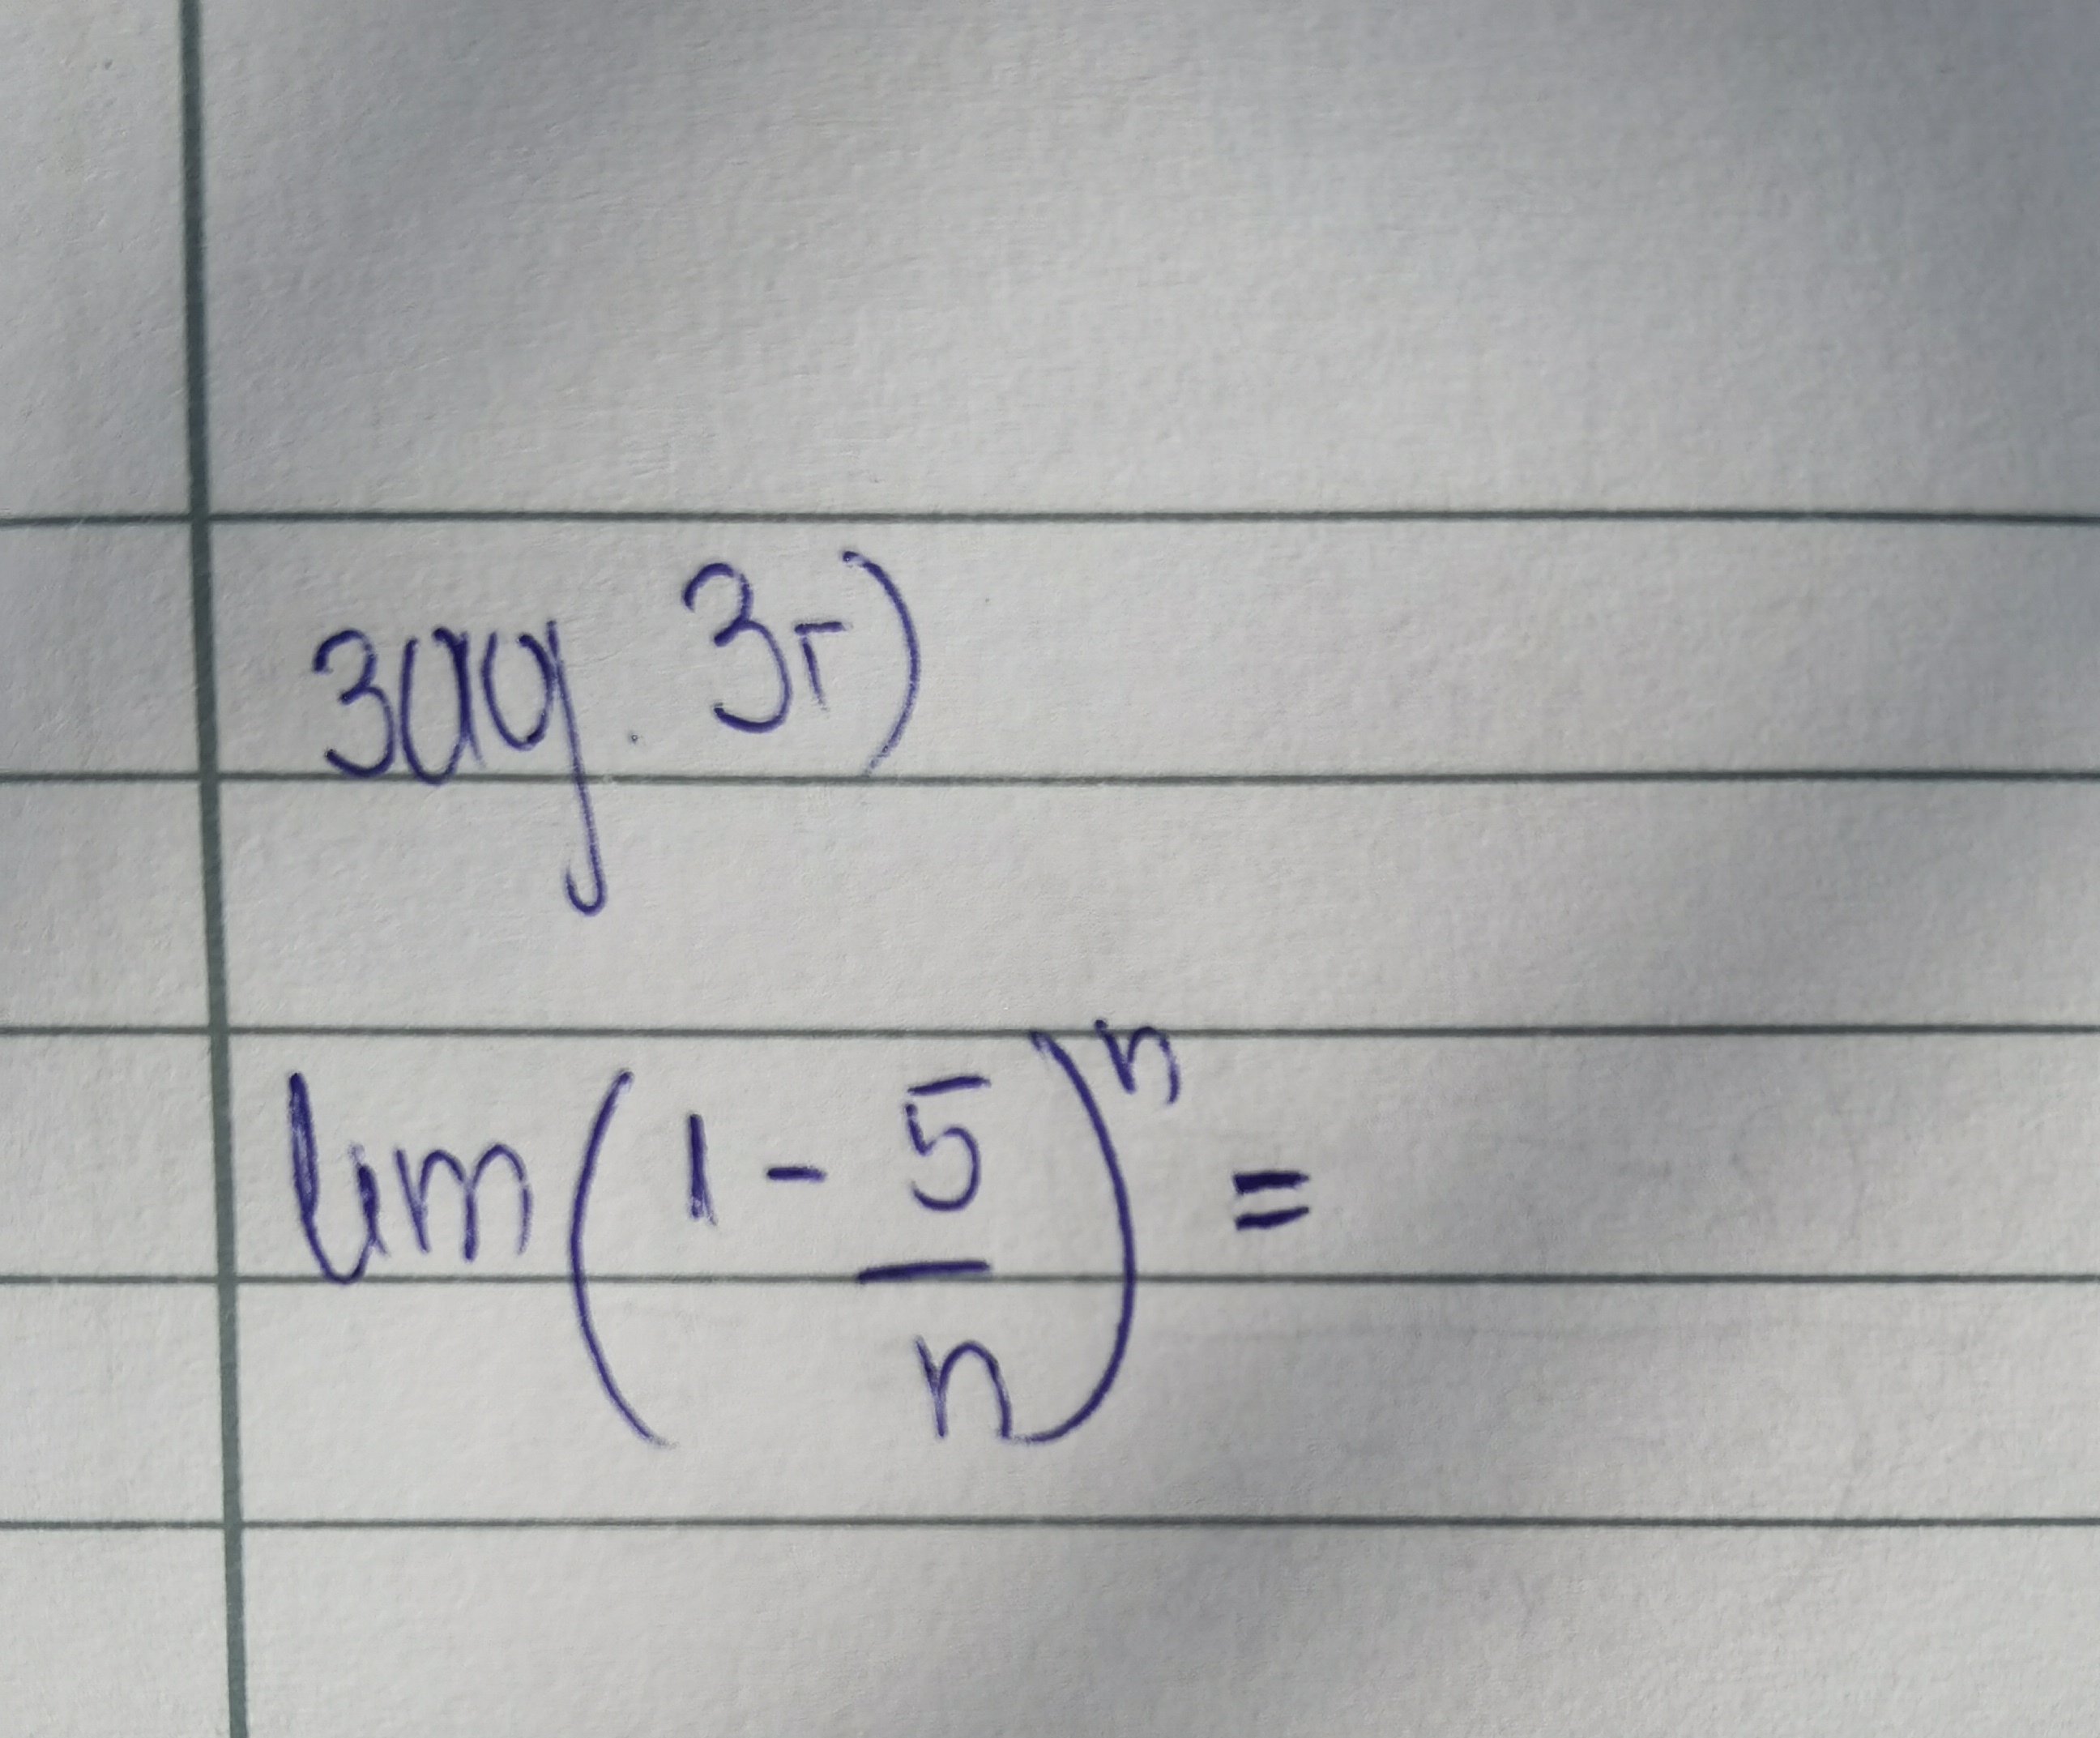 зад. 3г)
lim(1 - 5/n)^n =